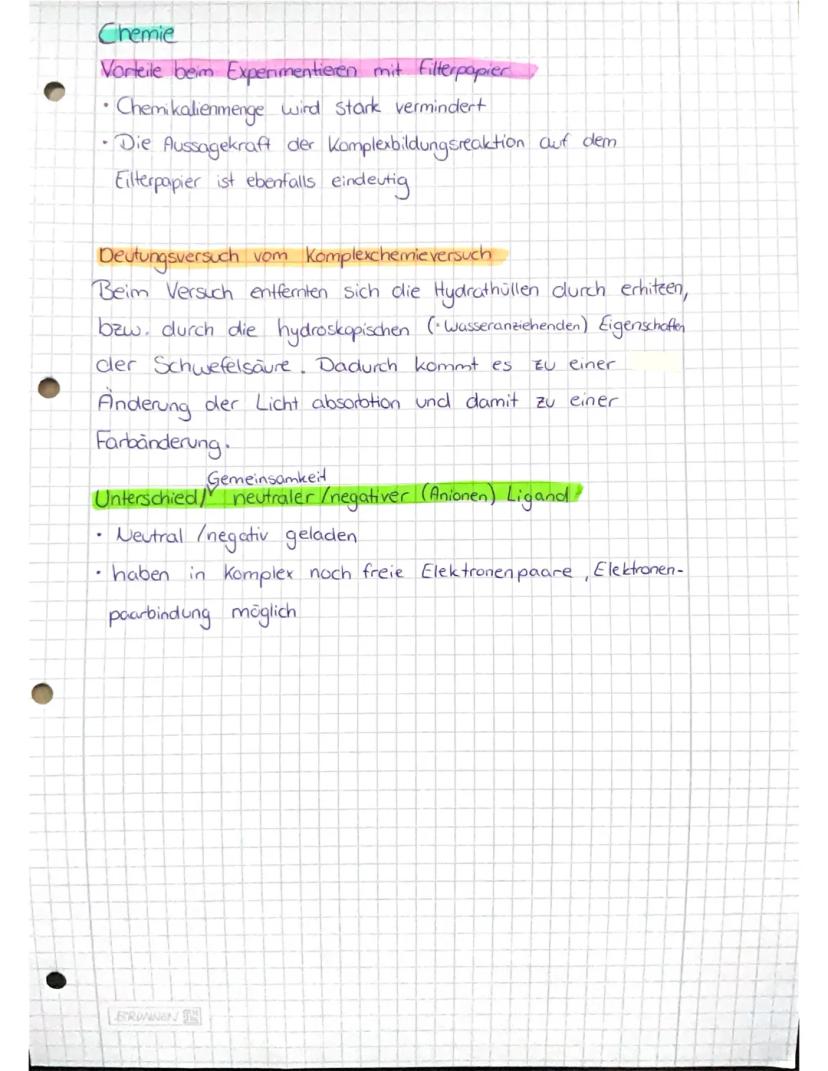 Chemie
Vorteile beim Experimentieren mit Filterpapier
· Chemikalienmenge wird stark vermindert
· Die Aussagekraft der Komplexbildungsreaktion auf dem
Filterpapier ist ebenfalls eindeutig
Deutungsversuch vom Komplexchemieversuch
Beim Versuch entfernten sich die Hydrathüllen durch erhitzen,
bzw. durch die hydroskopischen (·wasseranziehenden) Eigenschaften
der Schwefelsäure. Dadurch kommt es zu einer
Änderung der Licht absorbtion und damit zu einer
Farbänderung.
Gemeinsamkeit
Unterschied/ neutraler/negativer (Anionen) Ligand
· Neutral /negativ geladen
· haben in Komplex noch freie Elektronenpaare, Elektronen-
paarbindung möglich
BRUNNEN